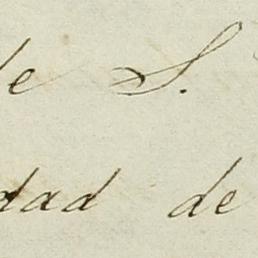 de S.
dad de